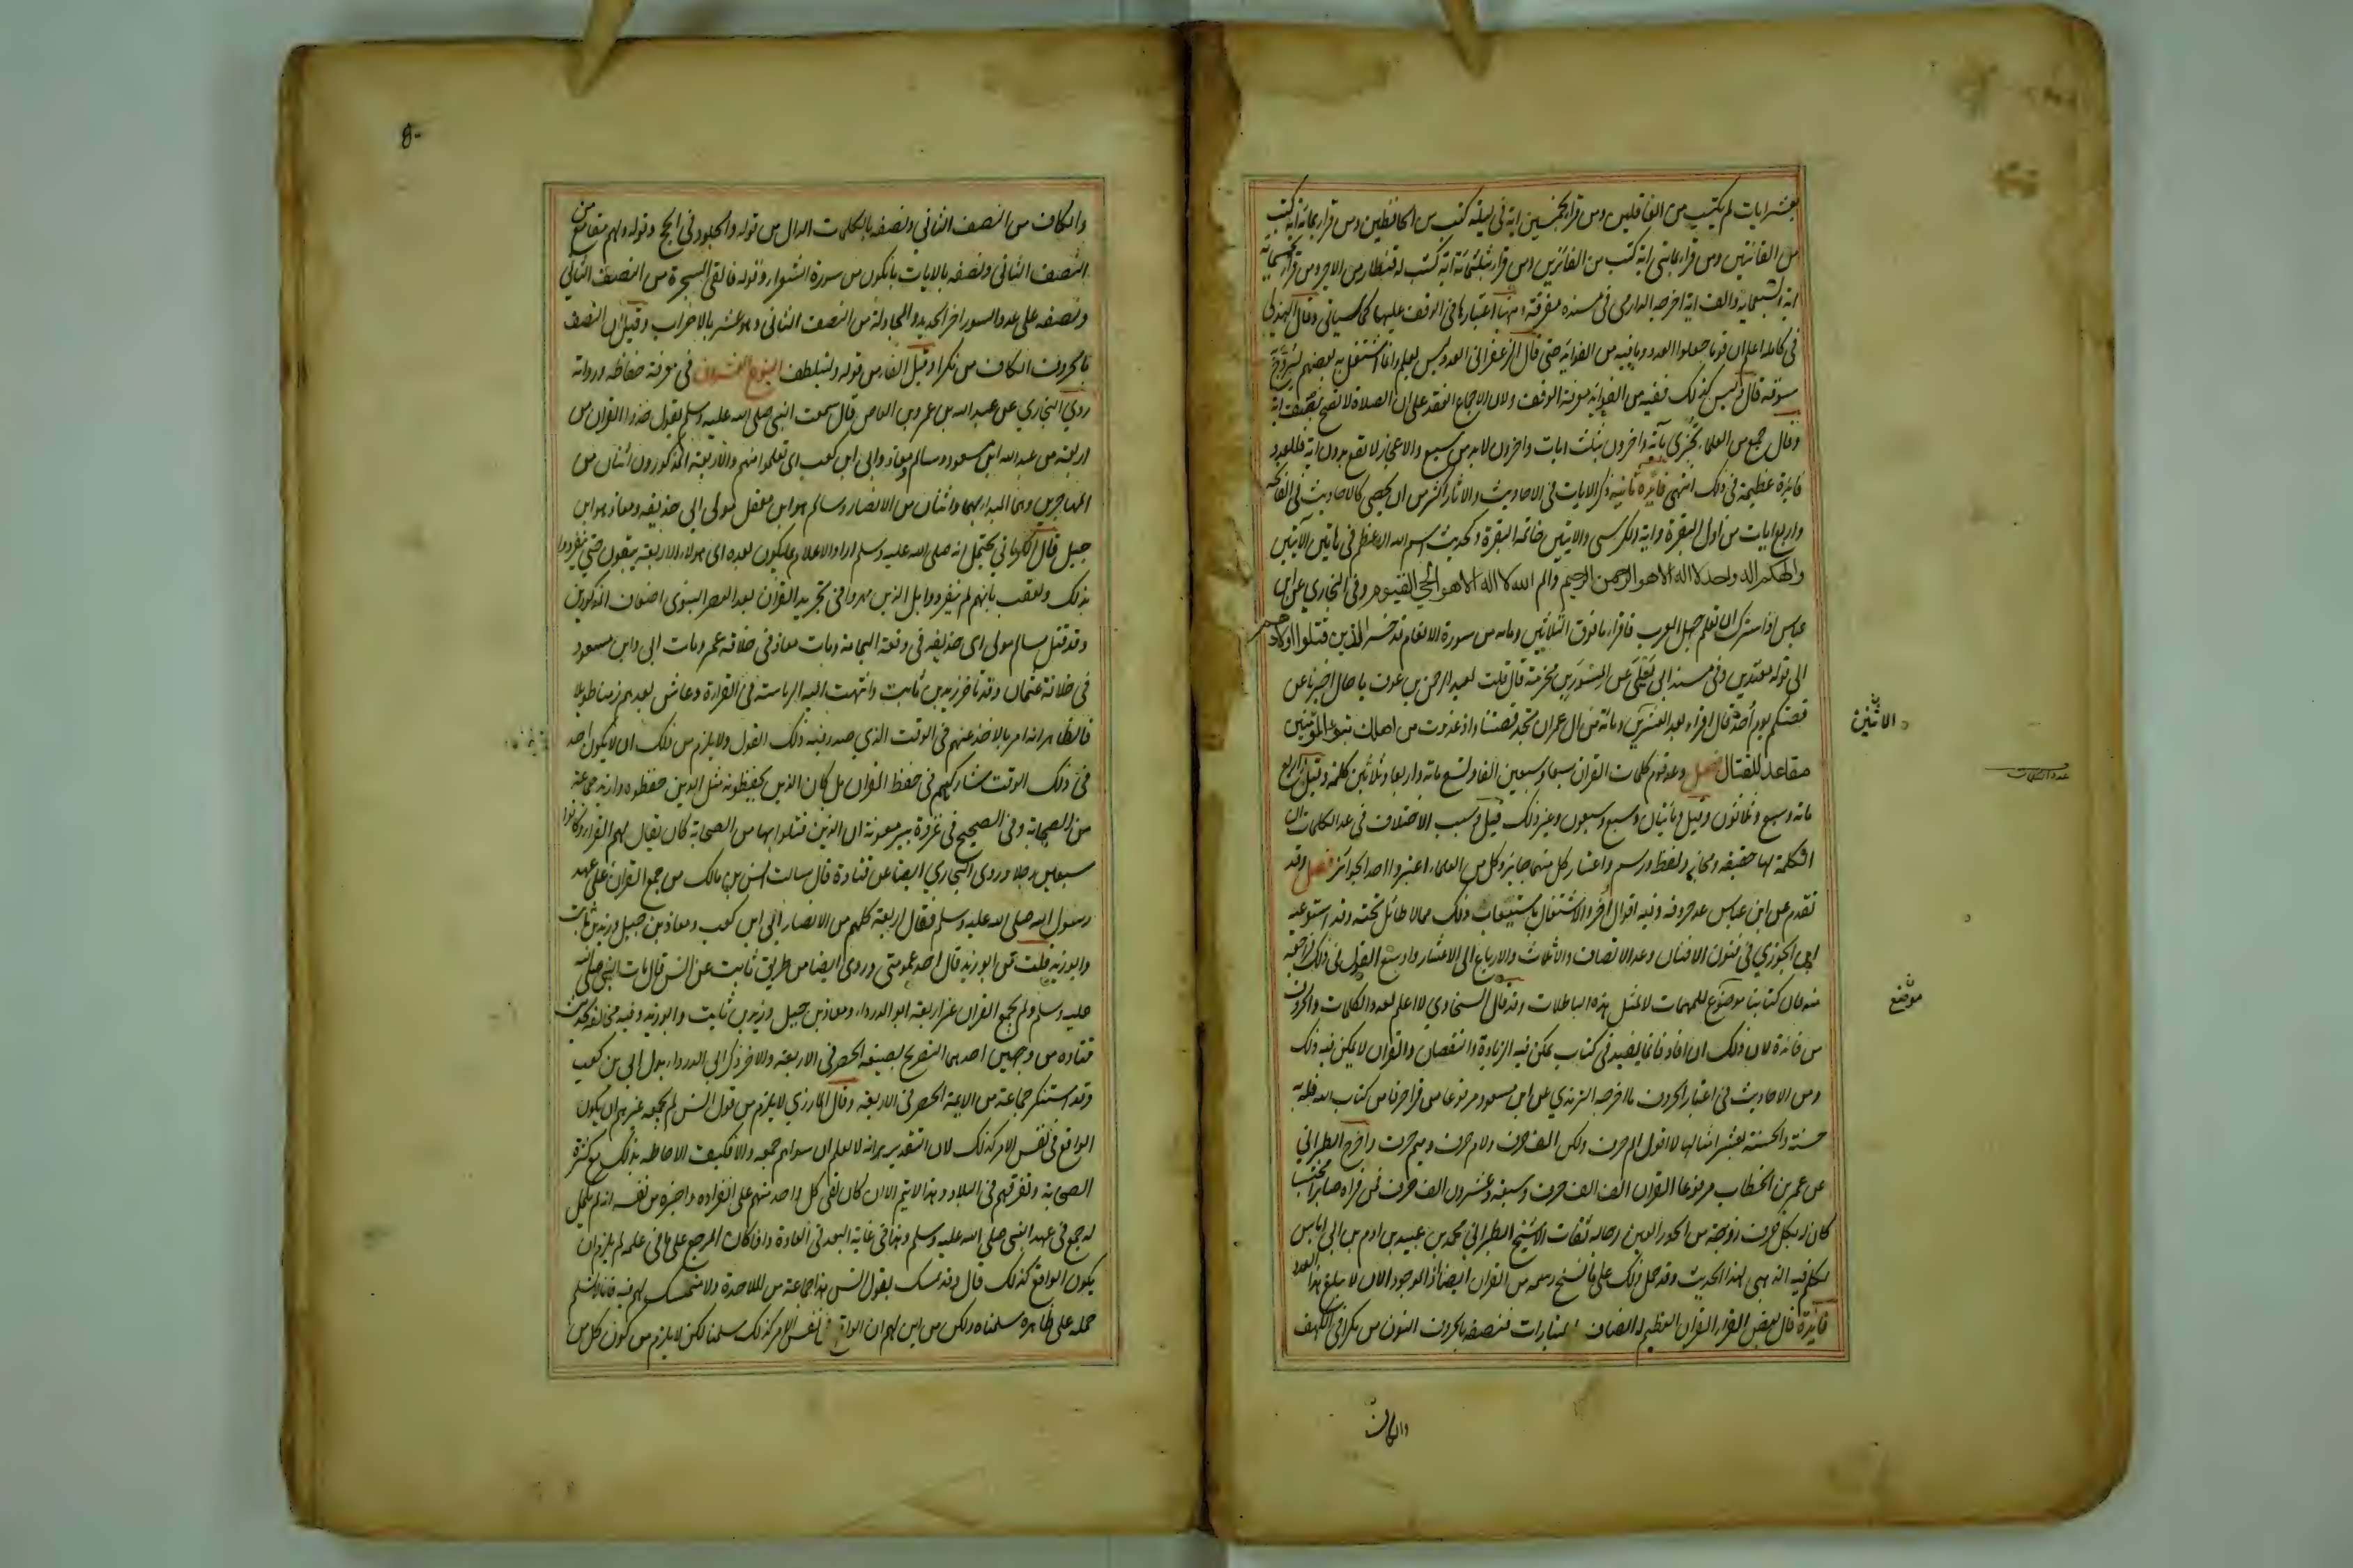 بعشر ايات لم يكتب من الغافلين ومن قرا بخمسين اية في ليلة كتب من الحافظين ومن قرا بماية اية كتب
من القانتين ومن قرا بمايتي اية كتب من الفائزين ومن قرا بثلثمائة اية كتب له قنطار من الاجر ومن قرا بخمسماية
اية وسبعماية والف اية اخرجه الدارمي في مسنده مفرقة ومنها اعتبارها في الوقف عليها كما سياتي وقال الهذلي
في كامله اعلم ان قوما جعلوا العدد وما فيه من الفوايد حتى قال الزعفراني العدد ليس بعلم وانما اشتغل به بعضهم ليروج
سوقه قال وليس كذلك ففيه من الفوايد معرفة الوقف ولان الاجماع انعقد على ان الصلاة لا تصح بنصف اية
وقال جمع من العلماء تجزي بآية واخرون بثلث ايات واخرون لا بد من سبع والاعجاز لا تقع بدون اية فللعدد
فائدة عظيمة في ذلك انتهى فائدة ثانية ذكر الايات في الاحاديث والاثار اكثر من ان يحصى كالاحاديث في الفاتحة
واربع ايات من اول البقرة واية الكرسي والايتين خاتمة البقرة وكحديث اسم الله الاعظم في هاتين الآيتين
والهكم اله واحد لا اله الا هو الرحمن الرحيم والم الله لا اله الا هو الحي القيوم وفي البخاري عن ابن
عباس اذا سرك ان تعلم جهل العرب فاقرا ما فوق الثلاثين ومائه من سورة الانعام قد خسر الذين قتلوا اولادهم
الى قوله مهتدين وفي مسند ابي يعلى عن المسور بن مخرمة قال قلت لعبد الرحمن بن عوف يا خال اخبرنا عن
قصتكم يوم أحد قال اقرا بعد العشرين ومائة من ال عمران تجد قصتنا واذ غدوت من اهلك تبوئ المؤمنين
مقاعد للقتال فصل وعد قوم كلمات القران سبعا وسبعين الفا وتسع مائة واربعا وثلاثين كلمة وقيل واربع
مائة وسبع وثلاثون وقيل ومائتان وسبع وسبعون وغير ذلك قيل وسبب الاختلاف في عد الكلمات ان
الكلمة لها حقيقة ومجاز ولفظ ورسم واعتبار كل منها جايز وكل من العلماء اعتبر احد الجوائز فصل وقد
تقدم عن ابن عباس عد حروفه وفيه اقوال أخر والاشتغال باستيعاب ذلك مما لا طائل تحته وقد استوعبه
ابن الجوزي في فنون الافنان وعد الانصاف والاثلاث والارباع الى الاعشار واوسع القول في ذلك فراجعه
منه فان كتابنا موضوع للمهمات لا لمثل هذه الباطلات وقد قال السخاوي لا اعلم لعدد الكلمات والحروف
من فائدة لان ذلك ان افاد فانما يفيد في كتاب يمكن فيه الزيادة والنقصان والقران لا يمكن فيه ذلك
ومن الاحاديث في اعتبار الحروف ما اخرجه الترمذي عن ابن مسعود مرفوعا من قرا حرفا من كتاب الله فله به
حسنة والحسنة بعشر امثالها لا اقول الم حرف ولكن الف حرف ولام حرف وميم حرف واخرج الطبراني
عن عمر بن الخطاب مرفوعا القران الف الف حرف وسبعة وعشرون الف حرف فمن قراه صابرا محتسبا
كان له بكل حرف زوجة من الحور العين رجاله ثقات الا شيخ الطبراني محمد بن عبيد بن ادم بن ابي اياس
تكلم فيه الذهبي لهذا الحديث وقد حمل ذلك على ما نسخ رسمه من القران ايضا اذ الموجود الان لا يبلغ هذا العدد
فائدة قال بعض القراء القران العظيم له انصاف باعتبارات فنصفه بالحروف النون من نكرا في الكهف
والكاف
الاثنين
عدد الكلمات
موضع
والكاف من النصف الثاني ونصفه بالكلمات الدال من قوله والجلود في الحج وقوله ولهم مقامع من
النصف الثاني ونصفه بالايات يافكون من سورة الشعراء وقوله فالقى السحرة من النصف الثاني
ونصفه على عدد السور اخر الحديد والمجادلة من النصف الثاني وهو عشره بالاحزاب وقيل ان النصف
بالحروف الكاف من نكرا وقيل الفا من قوله وليتلطف النوع العشرون في معرفة حفاظه ورواته
روى البخاري عن عبد الله بن عمرو بن العاص قال سمعت النبي صلى الله عليه وسلم يقول خذوا القران من
اربعة من عبد الله ابن مسعود وسالم ومعاذ وابي ابن كعب اي تعلموا منهم والاربعة المذكورون اثنان من
المهاجرين وهما المبدا بهما واثنان من الانصار وسالم هو ابن معقل مولى ابي حذيفه ومعاذ هو ابن
جبل قال الكرماني يحتمل انه صلى الله عليه وسلم اراد الاعلام بما يكون بعده اي هولاء الاربعة يبقون حتى ينفردوا
بذلك وتعقب بانهم لم ينفردوا بل الذين مهروا في تجويد القران بعد العصر النبوي اضعاف المذكورين
وقد قتل سالم مولى ابي حذيفه في وقعة اليمامة ومات معاذ في خلافة عمر ومات ابي وابن مسعود
في خلافة عثمان وقد تاخر زيد بن ثابت وانتهت اليه الرياسة في القراءة وعاش بعدهم زمنا طويلا
فالظاهر انه امر بالاخذ عنهم في الوقت الذي صدر فيه ذلك القول ولا يلزم من ذلك ان لا يكون احد
في ذلك الوقت شاركهم في حفظ القران بل كان الذين يحفظونه مثل الذين حفظوه وازيد جماعة
من الصحابة وفي الصحيح في غزوة بير معونة ان الذين قتلوا بها من الصحابة كان يقال لهم القراء وكانوا
سبعين رجلا وروى البخاري ايضا عن قتادة قال سالت انس بن مالك من جمع القران على عهد
رسول الله صلى الله عليه وسلم فقال اربعة كلهم من الانصار ابي ابن كعب ومعاذ بن جبل وزيد بن ثابت
وابو زيد قلت من ابو زيد قال احد عمومتي وروى ايضا من طريق ثابت عن انس قال مات النبي صلى الله
عليه وسلم ولم يجمع القران غير اربعة ابو الدرداء ومعاذ بن جبل وزيد بن ثابت وابو زيد وفيه مخالفة لحديث
قتاده من وجهين احدهما التصريح بصيغة الحصر في الاربعة والاخر ذكر ابي الدرداء بدل ابي بن كعب
وقد استنكر جماعة من الايمة الحصر في الاربعة وقال المازري لا يلزم من قول انس لم يجمعه غيرهم ان يكون
الواقع في نفس الامر كذلك لان التقدير انه لا يعلم ان سواهم جمعه والا فكيف الاحاطه بذلك مع كثرة
الصحابة وتفرقهم في البلاد وهذا لا يتم الا ان كان لقي كل واحد منهم على انفراده واخبره عن نفسه انه لم يكمل
له جمع في عهد النبي صلى الله عليه وسلم وهذا في غاية البعد في العادة واذا كان المرجع على ما في علمه لم يلزم ان
يكون الواقع كذلك قال وقد تمسك بقول انس هذا جماعة من الملاحدة ولا متمسك لهم فيه فانا لا نسلم
حمله على ظاهره سلمناه ولكن من اين لهم ان الواقع في نفس الامر كذلك سلمنا لكن لا يلزم من كون كل من